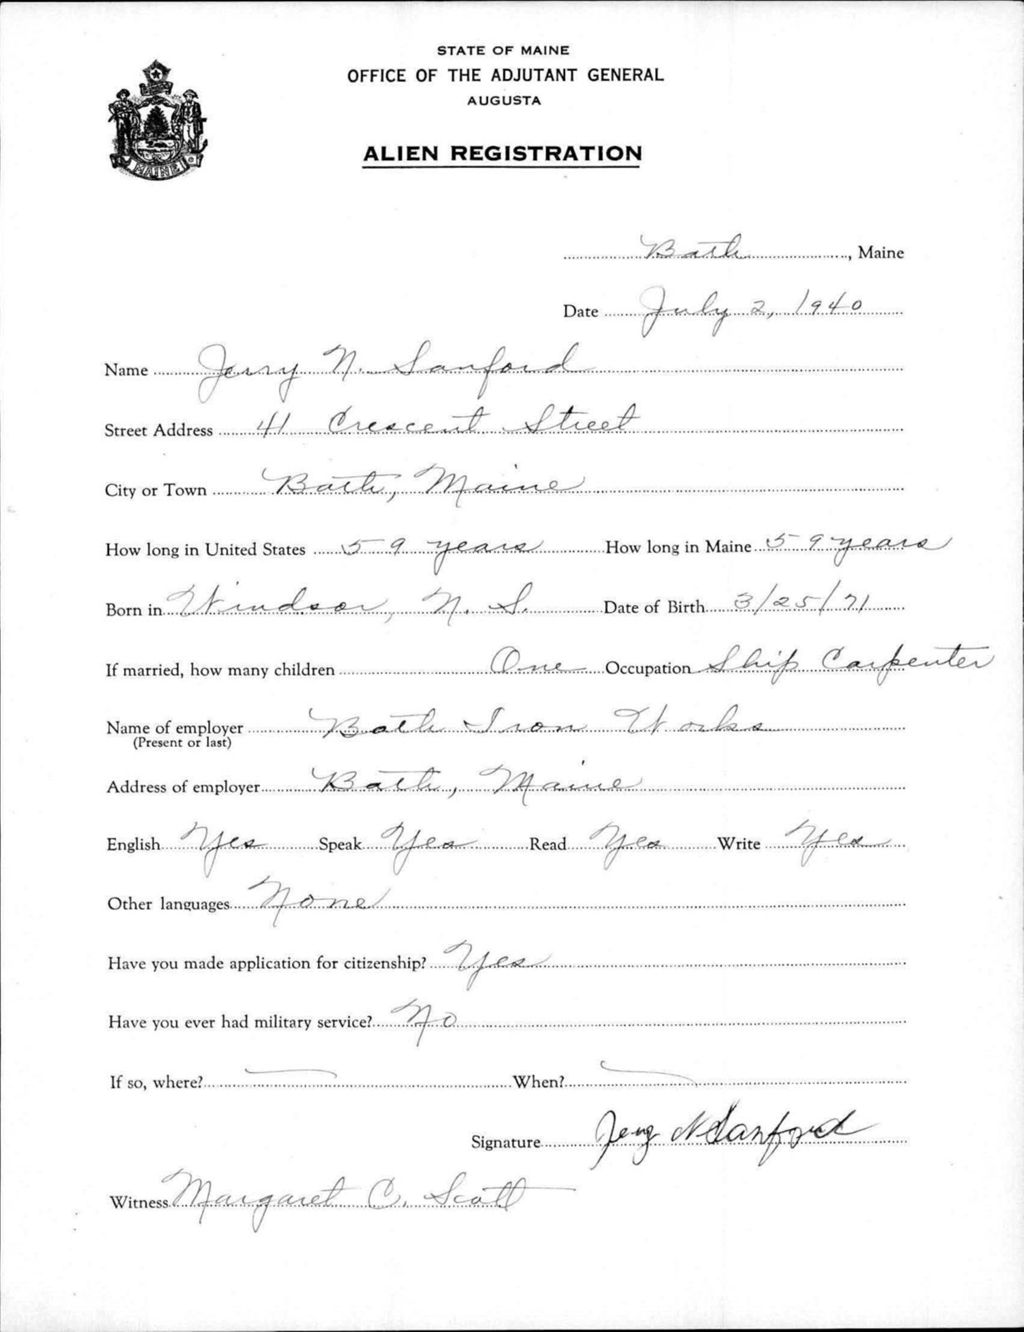 STATE OF MAINE
OFFICE OF THE ADJUTANT GENERAL
AUGUSTA
ALIEN REGISTRATION
MAINE
Bath, Maine
Date July 2, 1940
Name Jerry N. Sanford
Street Address 41 Crescent Street
City or Town Bath, Maine
How long in United States 59 years How long in Maine 59 years
Born in Windsor, N. S. Date of Birth 3/25/71
If married, how many children One Occupation Ship Carpenter
Name of employer Bath Iron Works
(Present or last)
Address of employer Bath, Maine
English Yes Speak Yes Read Yes Write Yes
Other languages None
Have you made application for citizenship? Yes
Have you ever had military service? No
If so, where? — When? —
Signature Jerry N Sanford
Witness Margaret C. Scott